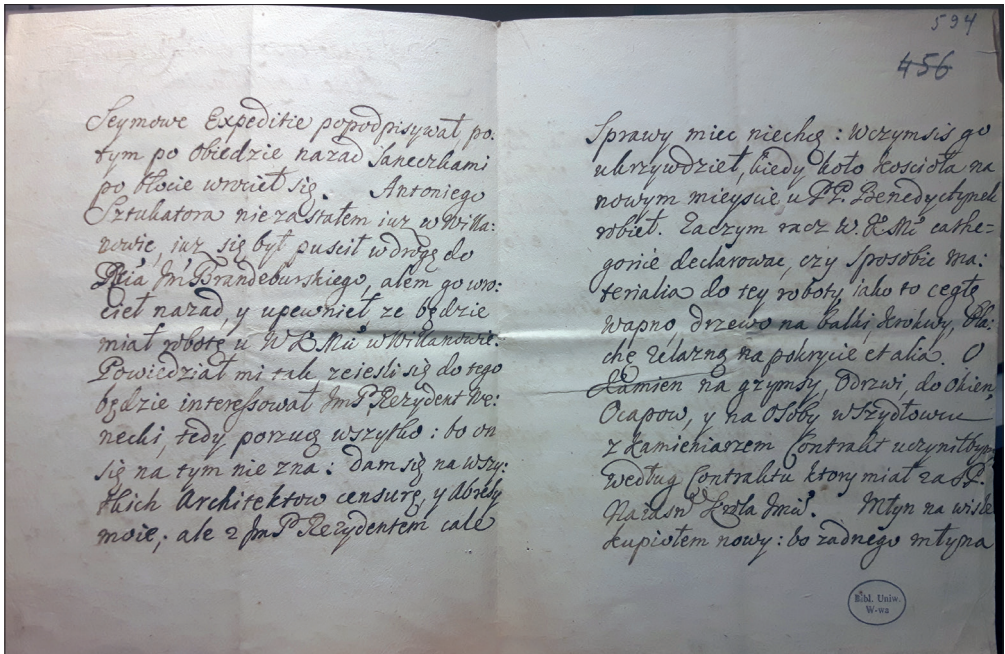 594
456
Seymowe Expeditie popodpisywał po:
tym po obiedzie nazad Saneczkami
po błocie wrocieł się. Antoniego
Sztukatora nie zastałem iuz w Willa:
nowie, iuz się był puscił w drogę do
Brandeburskiego, alem go wro:
cieł nazad, y upewnieł ze będzie
miał robotę u W wWillanowie:
Powiedział mi tak zeiesli się do tego
będzie interessował JmP Rezydent We:
necki, tedy porzucę wszytko: bo on
się na tym nie zna: dam się na wszy:
tkich Architektow censurę, y Abresy
moie, ale z JmP Rezydentem cale
Sprawy miec niechcę: wczymsis go
ukrzywdzieł, kiedy koło kosciołа na
nowym mieyscu u PP. Benedyktynek
robieł. Zaczym racz W. cathe=
gorice declarowac, czy sposobic ma:
terialia do tey roboty, iako to cegłę
wapno, drzewo na balki, krokwy, Bla:
chę zelazną na pokrycie et alia. O
kamien na gzymsy, odrzwi, do okien,
Ocapow, y na Osoby w Szydłowcu
z kamieniarzem Contrakt uczyniłbym
według Contraktu ktory miał za S.P.
Krola Jmci. Młyn na wisle
kupiołem nowy: bo zadnego młyna
Bibl. Uniw.
W-wa